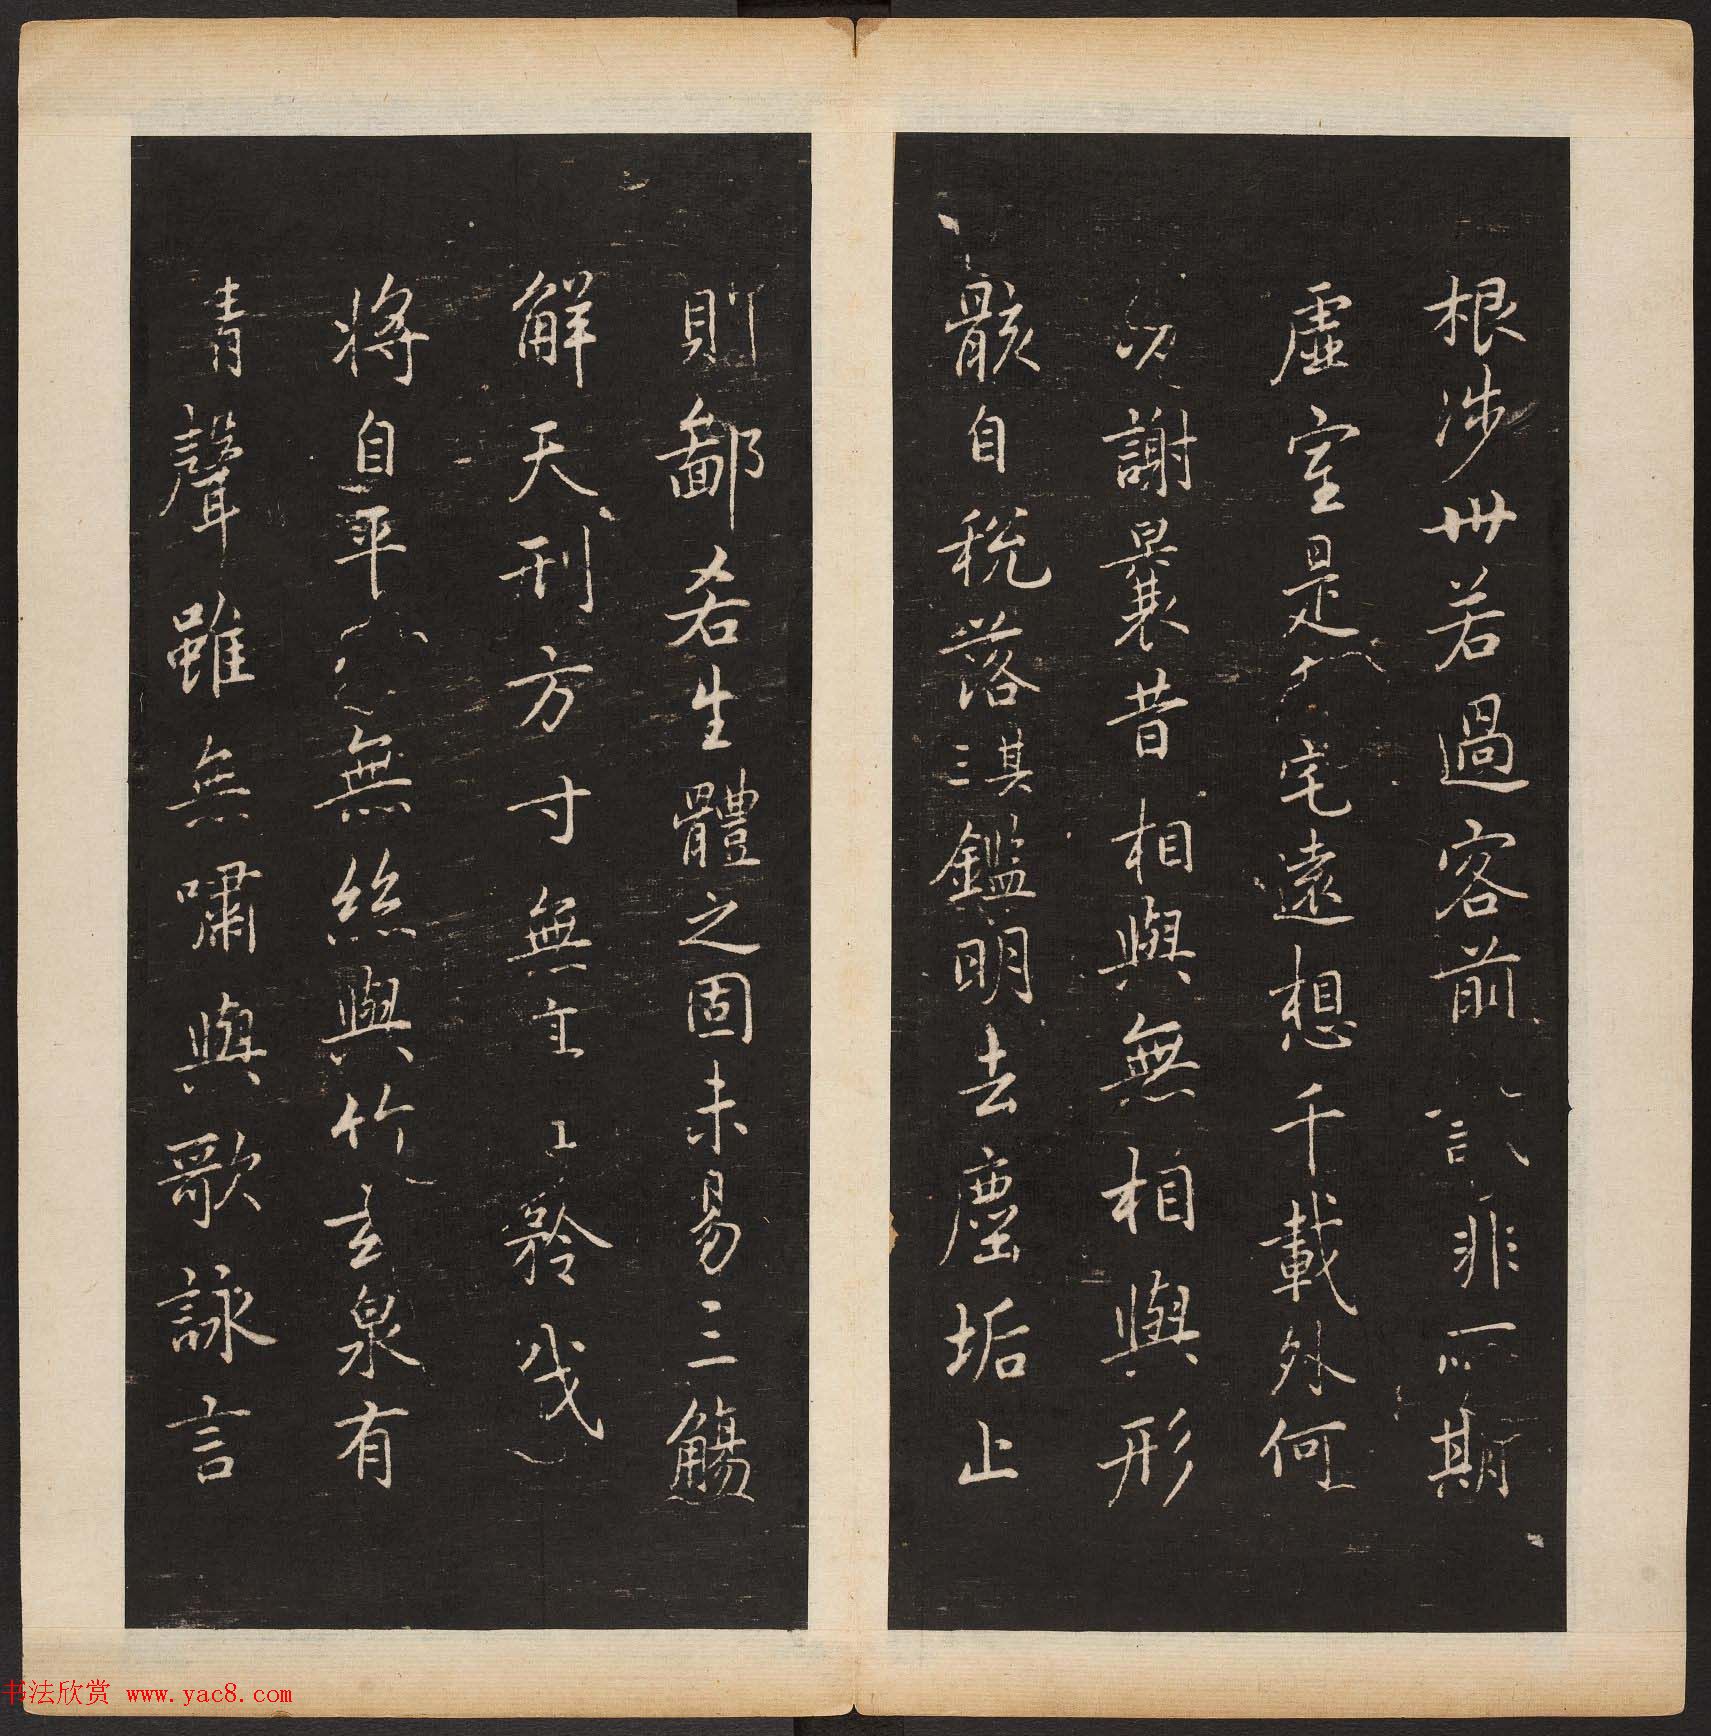 根涉世若過客前識非所期
虛室是宅遠想千載外何
必謝曩昔相與無相與形
骸自稅落其三鑑明去塵垢止
則鄙吝生體之固未易三觴
解天刑方寸無矜伐
將自平無絲與竹玄泉有
清聲雖無嘯與歌詠言
书法欣赏 www.yac8.com